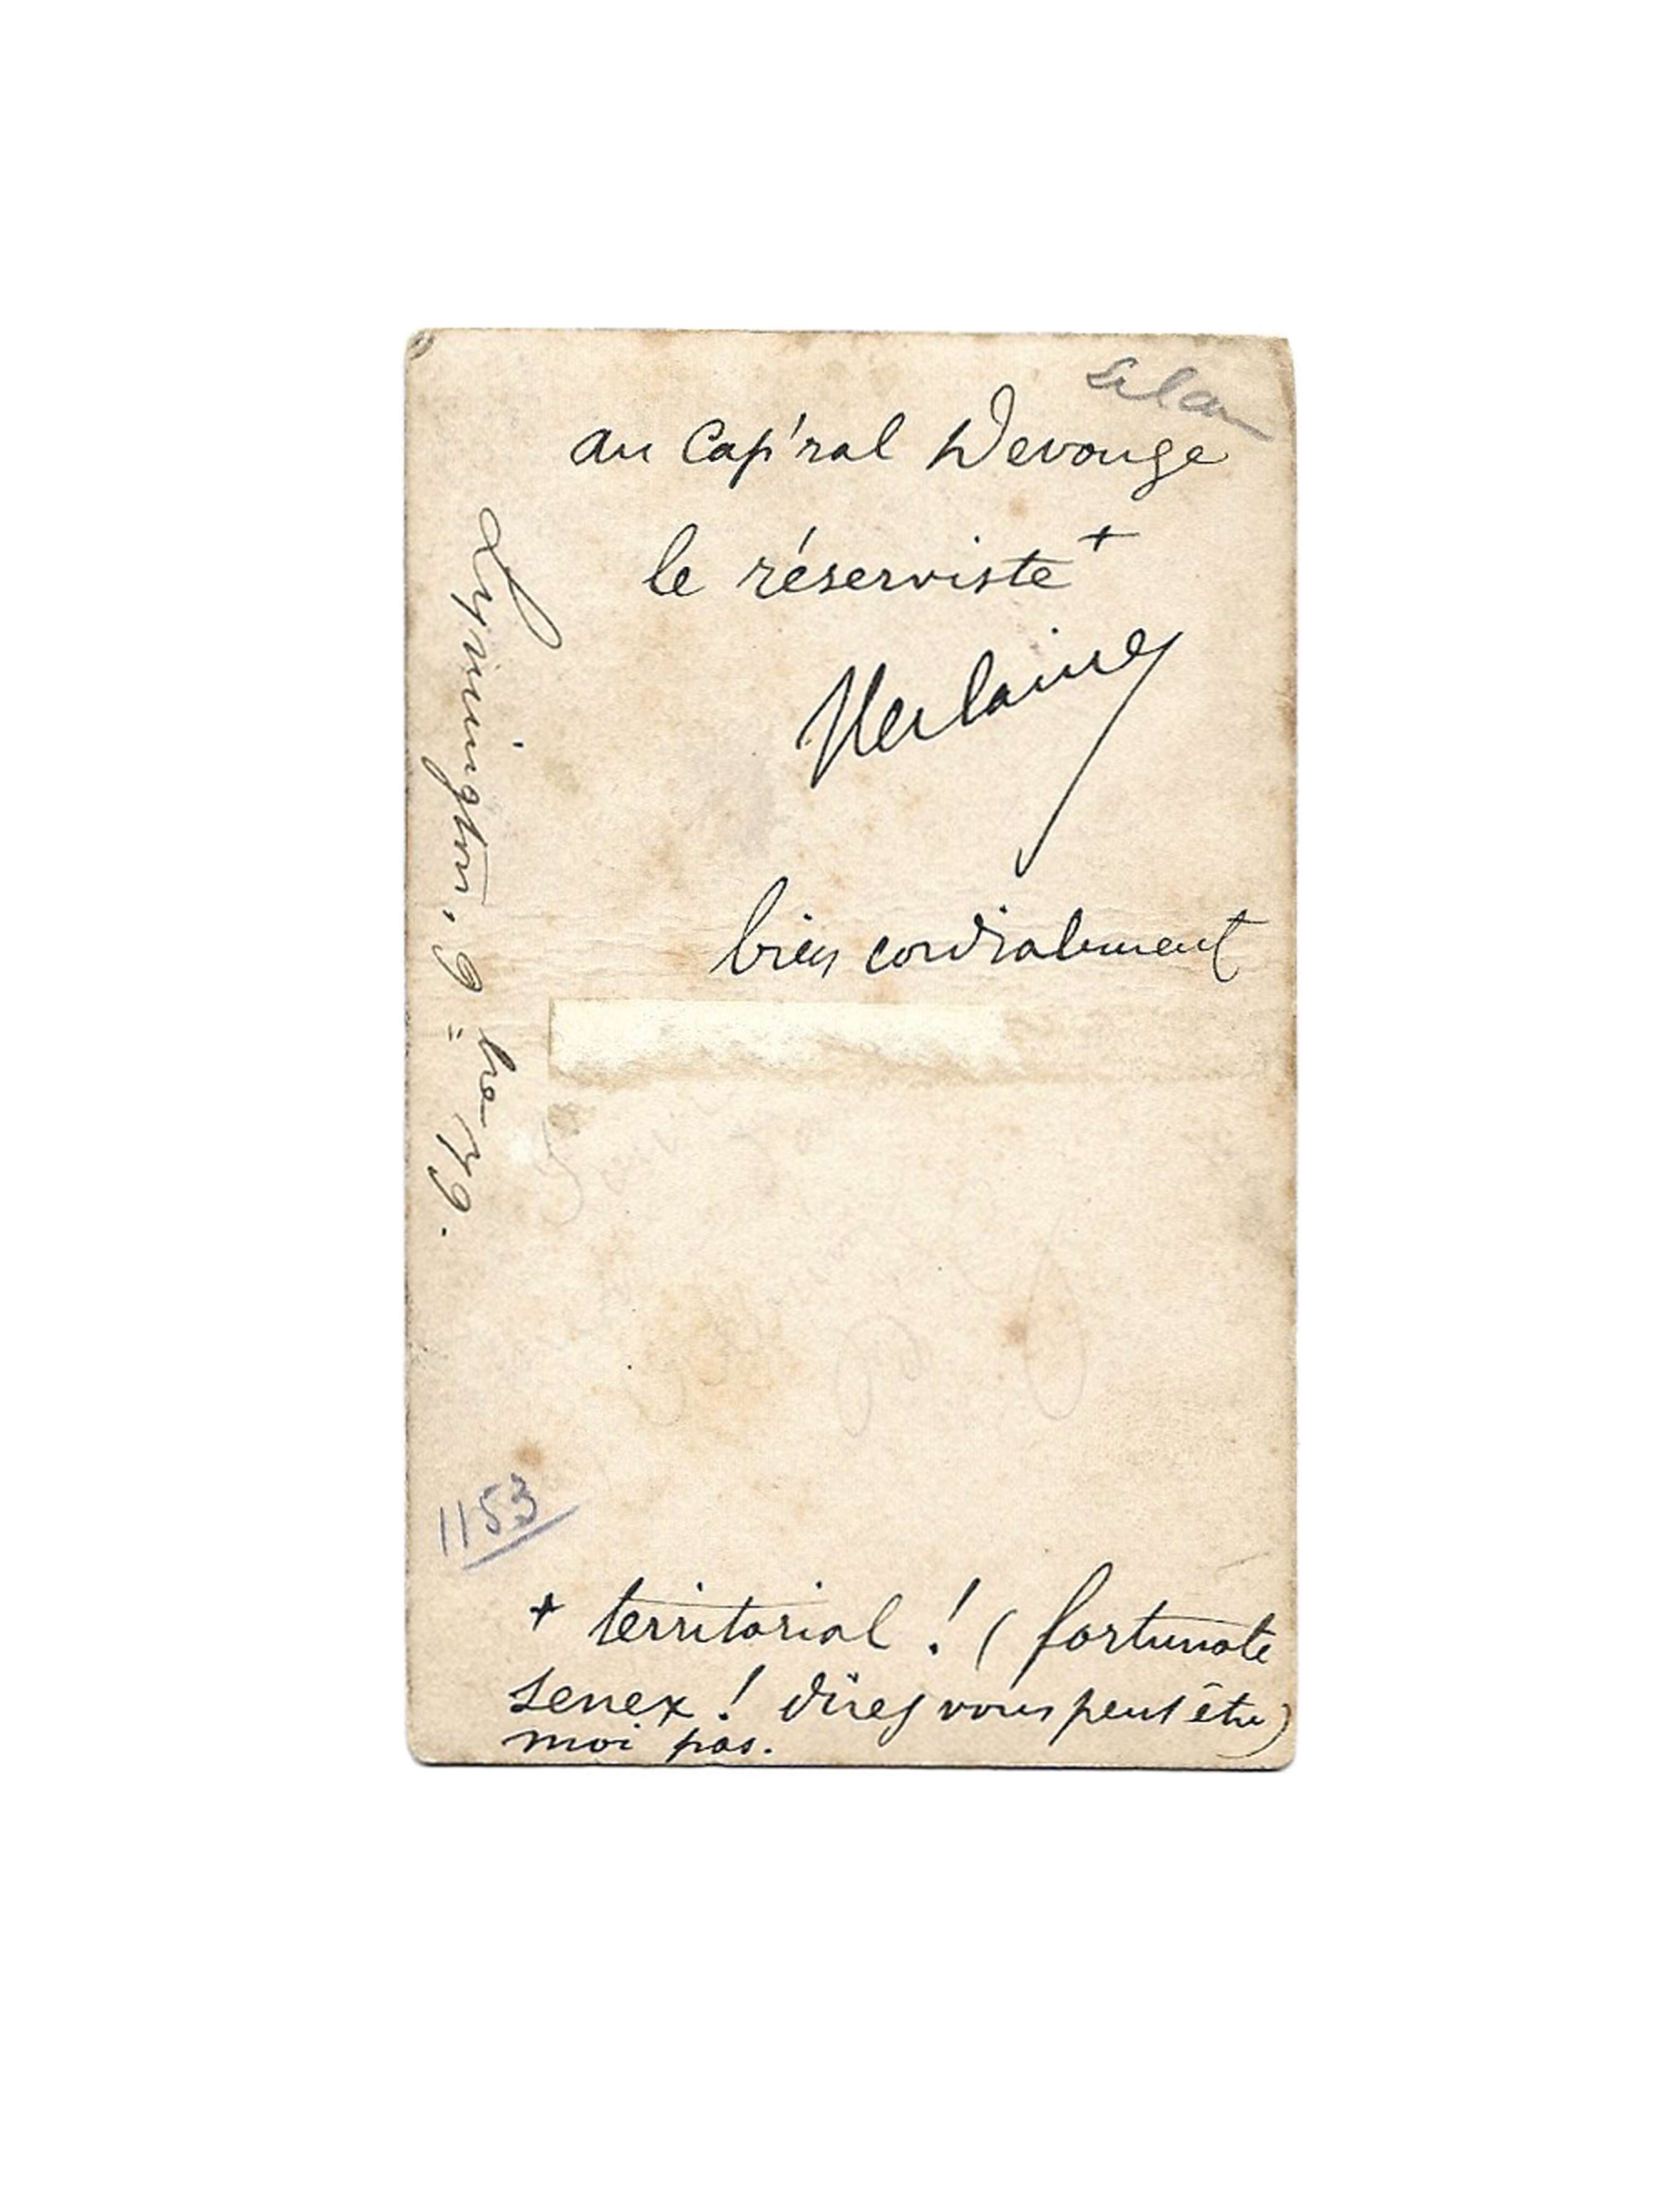 au Cap'ral Devouge
le réserviste +
Verlaine
bien cordialement
Lymington, 9 bre 79.
1153
+ territorial ! ( fortunate
senex ! direz vous peut être )
moi pas.